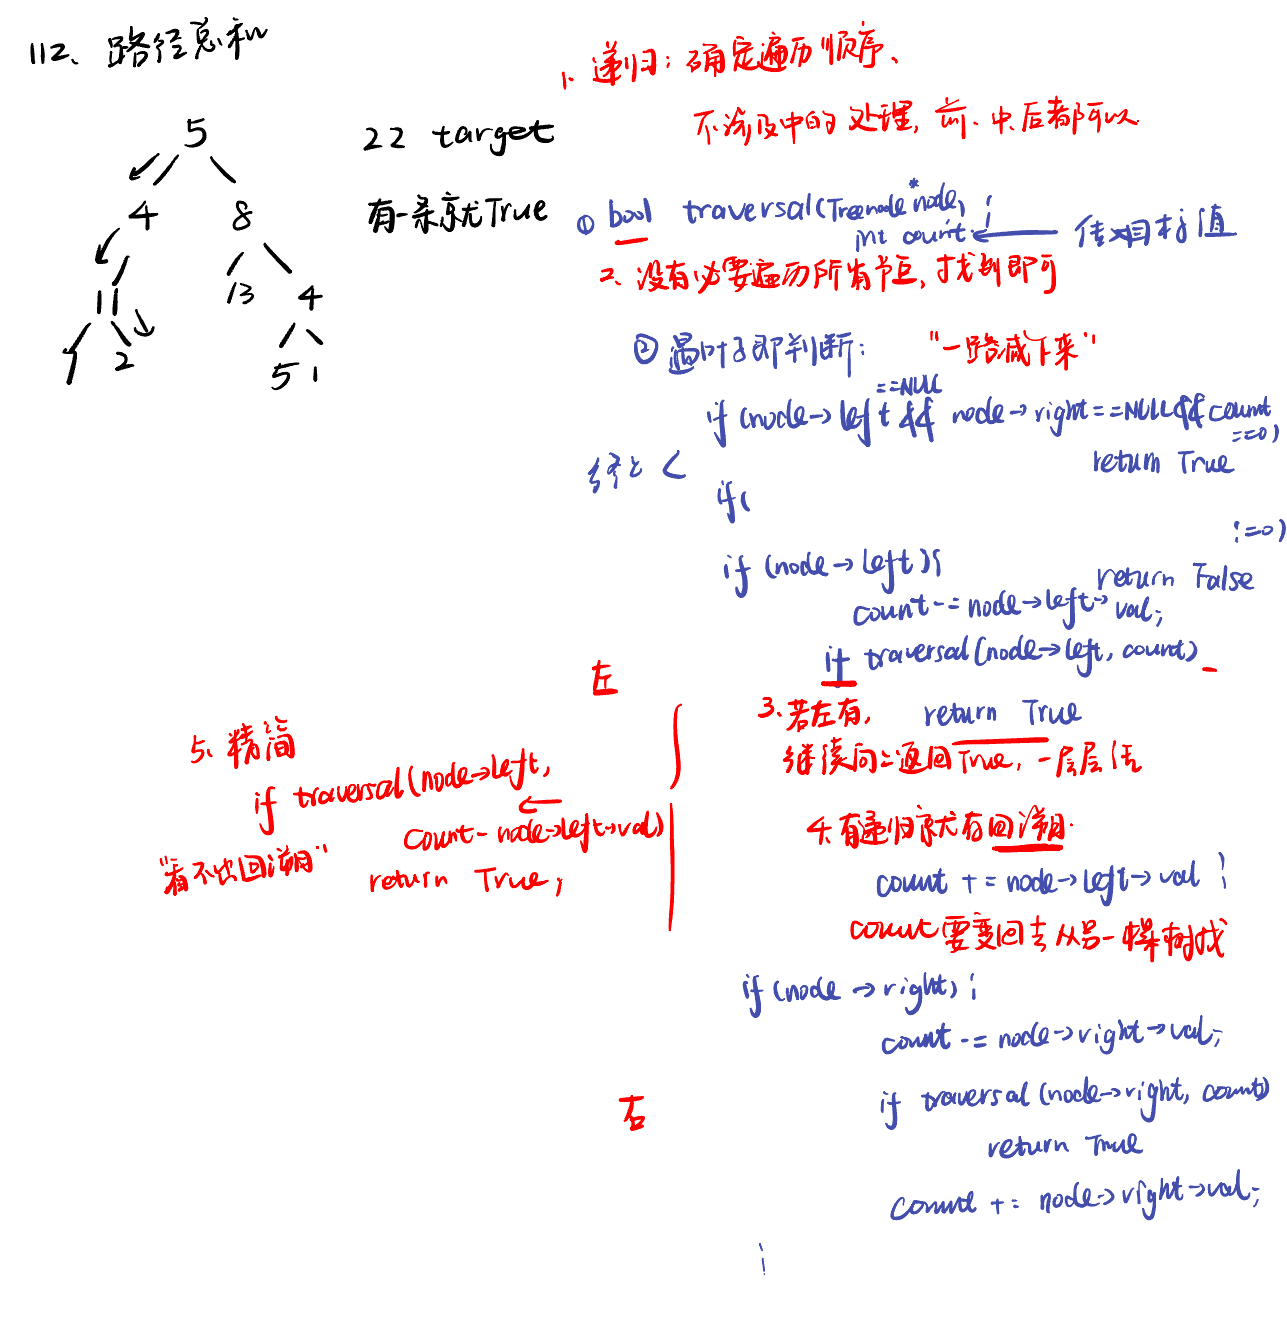 112、路径总和
5
4 8
11 13 4
7 2 5 1
22 target
有一条就True
1、递归：确定遍历顺序、
不涉及中的处理，前、中、后都可以
① bool traversal(Treenode*node,
int count ← 传入目标值
2、没有必要遍历所有节点，找到即可
② 遇叶子即判断： "一路减下来"
if (node->left ==NULL && node->right==NULL && count
==0)
return True
终止 <
if(
!=0)
return False
if (node->left){
count -= node->left->val;
if traversal(node->left, count)
左
3、若左有， return True
继续向上返回True，一层层
4、有递归就有回溯
count += node->left->val
count需要变回去从另一棵树找
5、精简
if traversal(node->left,
count - node->left->val)
"看不出回溯"
return True;
if (node->right){
count -= node->right->val;
右
if traversal(node->right, count)
return True
count += node->right->val;
}